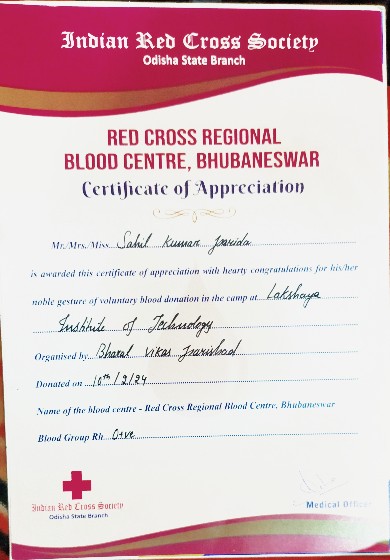 Indian Red Cross Society
Odisha State Branch
RED CROSS REGIONAL
BLOOD CENTRE, BHUBANESWAR
Certificate of Appreciation
Mr./Mrs./Miss Sahil Kumar Parida
is awarded this certificate of appreciation with hearty congratulations for his/her
noble gesture of voluntary blood donation in the camp at Lakshaya
Institute of Technology
Organised by Bharat Vikas Parishad
Donated on 10th/2/24
Name of the blood centre - Red Cross Regional Blood Centre, Bhubaneswar
Blood Group Rh O+ve
Indian Red Cross Society
Odisha State Branch
Medical Officer